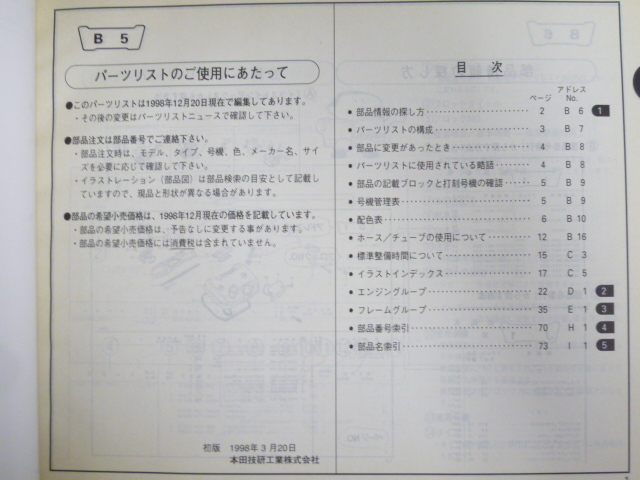 B 5
パーツリストのご使用にあたって
●このパーツリストは1998年12月20日現在で編集してあります。
・その後の変更はパーツリストニュースで確認して下さい。
●部品注文は部品番号でご連絡下さい。
・部品注文時は、モデル、タイプ、号機、色、メーカー名、サイ
ズを必要に応じて確認して下さい。
・イラストレーション（部品図）は部品検索の目安として記載し
ていますので、現品と形状が異なる場合があります。
●部品の希望小売価格は、1998年12月現在の価格を記載しています。
・部品の希望小売価格は、予告なしに変更する事があります。
・部品の希望小売価格には消費税は含まれていません。
初版 1998年3月20日
本田技研工業株式会社
目 次
ページ アドレス No.
● 部品情報の探し方 2 B 6 1
● パーツリストの構成 3 B 7
● 部品に変更があったとき 4 B 8
● パーツリストに使用されている略語 4 B 8
● 部品の記載ブロックと打刻号機の確認 5 B 9
● 号機管理表 5 B 9
● 配色表 6 B 10
● ホース／チューブの使用について 12 B 16
● 標準整備時間について 15 C 3
● イラストインデックス 17 C 5
● エンジングループ 22 D 1 2
● フレームグループ 35 E 1 3
● 部品番号索引 70 H 1 4
● 部品名索引 73 I 1 5